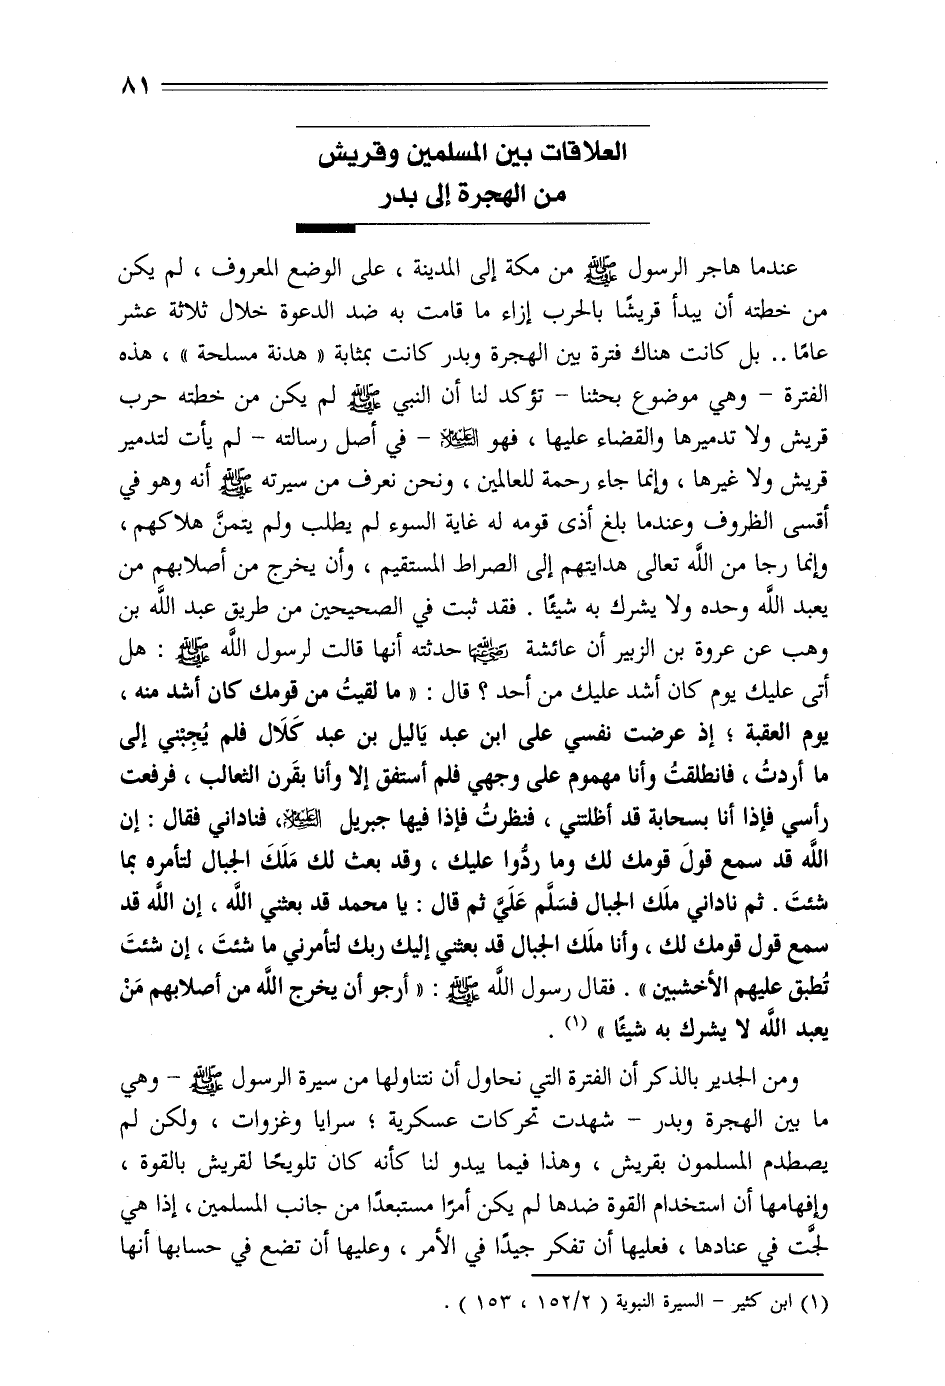 ٨١
العلاقات بين المسلمين وقريش
من الهجرة إلى بدر
عندما هاجر الرسول ﷺ من مكة إلى المدينة ، على الوضع المعروف ، لم يكن
من خطته أن يبدأ قريشًا بالحرب إزاء ما قامت به ضد الدعوة خلال ثلاثة عشر
عامًا .. بل كانت هناك فترة بين الهجرة وبدر كانت بمثابة « هدنة مسلحة » ، هذه
الفترة – وهي موضوع بحثنا – تؤكد لنا أن النبي ﷺ لم يكن من خطته حرب
قريش ولا تدميرها والقضاء عليها ، فهو عليه السلام – في أصل رسالته – لم يأت لتدمير
قريش ولا غيرها ، وإنما جاء رحمة للعالمين ، ونحن نعرف من سيرته ﷺ أنه وهو في
أقسى الظروف وعندما بلغ أذى قومه له غاية السوء لم يطلب ولم يتمنَّ هلاكهم ،
وإنما رجا من اللَّه تعالى هدايتهم إلى الصراط المستقيم ، وأن يخرج من أصلابهم من
يعبد اللَّه وحده ولا يشرك به شيئًا . فقد ثبت في الصحيحين من طريق عبد اللَّه بن
وهب عن عروة بن الزبير أن عائشة رضي الله عنها حدثته أنها قالت لرسول اللَّه ﷺ : هل
أتى عليك يوم كان أشد عليك من أحد ؟ قال : « ما لقيتُ من قومك كان أشد منه ،
يوم العقبة ؛ إذ عرضت نفسي على ابن عبد يَاليل بن عبد كَلَال فلم يُجِبْني إلى
ما أردتُ ، فانطلقتُ وأنا مهموم على وجهي فلم أستفق إلا وأنا بقَرن الثعالب ، فرفعت
رأسي فإذا أنا بسحابة قد أظلتني ، فنظرتُ فإذا فيها جبريل عليه السلام، فناداني فقال : إن
اللَّه قد سمع قولَ قومك لك وما ردُّوا عليك ، وقد بعث لك مَلَكَ الجبال لتأمره بما
شئتَ . ثم ناداني ملَك الجبال فسَلَّم عَلَيَّ ثم قال : يا محمد قد بعثني اللَّه ، إن اللَّه قد
سمع قول قومك لك ، وأنا ملَك الجبال قد بعثني إليك ربك لتأمرني ما شئتَ ، إن شئتَ
تُطبق عليهم الأخشبين » . فقال رسول اللَّه ﷺ : « أرجو أن يخرج اللَّه من أصلابهم مَنْ
يعبد اللَّه لا يشرك به شيئًا » (١) .
ومن الجدير بالذكر أن الفترة التي نحاول أن نتناولها من سيرة الرسول ﷺ – وهي
ما بين الهجرة وبدر – شهدت تحركات عسكرية ؛ سرايا وغزوات ، ولكن لم
يصطدم المسلمون بقريش ، وهذا فيما يبدو لنا كأنه كان تلويحًا لقريش بالقوة ،
وإفهامها أن استخدام القوة ضدها لم يكن أمرًا مستبعدًا من جانب المسلمين ، إذا هي
لجَّت في عنادها ، فعليها أن تفكر جيدًا في الأمر ، وعليها أن تضع في حسابها أنها
(١) ابن كثير – السيرة النبوية ( ١٥٢/٢ ، ١٥٣ ) .